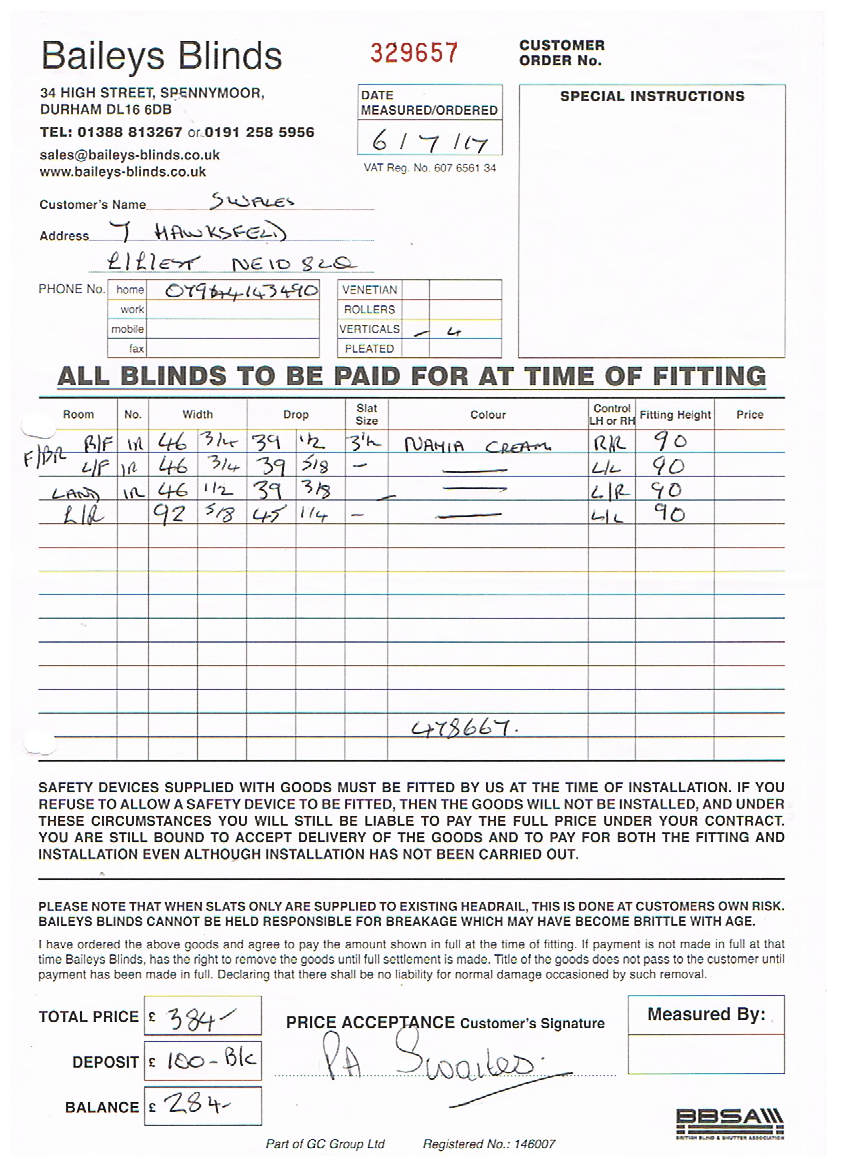 Baileys Blinds
329657
CUSTOMER
ORDER No.
34 HIGH STREET, SPENNYMOOR,
DURHAM DL16 6DB
TEL: 01388 813267 or 0191 258 5956
sales@baileys-blinds.co.uk
www.baileys-blinds.co.uk
DATE
MEASURED/ORDERED
6/7/17
VAT Reg. No. 607 6561 34
SPECIAL INSTRUCTIONS
Customer's Name SWALES
Address 7 HAWKSFELD
NE10 8LQ
PHONE No. home
work
mobile
fax
VENETIAN
ROLLERS
VERTICALS - 4
PLEATED
ALL BLINDS TO BE PAID FOR AT TIME OF FITTING
Room No. Width Drop Slat Size Colour Control LH or RH Fitting Height Price
F/BR R/F 1R 46 3/4 39 1/2 3½ NAMIA CREAM R/R 90
L/F 1R 46 3/4 39 5/8 - L/L 90
LAND 1R 46 1/2 39 3/8 - L/R 90
L/R 92 5/8 45 1/4 - L/L 90
478667.
SAFETY DEVICES SUPPLIED WITH GOODS MUST BE FITTED BY US AT THE TIME OF INSTALLATION. IF YOU
REFUSE TO ALLOW A SAFETY DEVICE TO BE FITTED, THEN THE GOODS WILL NOT BE INSTALLED, AND UNDER
THESE CIRCUMSTANCES YOU WILL STILL BE LIABLE TO PAY THE FULL PRICE UNDER YOUR CONTRACT.
YOU ARE STILL BOUND TO ACCEPT DELIVERY OF THE GOODS AND TO PAY FOR BOTH THE FITTING AND
INSTALLATION EVEN ALTHOUGH INSTALLATION HAS NOT BEEN CARRIED OUT.
PLEASE NOTE THAT WHEN SLATS ONLY ARE SUPPLIED TO EXISTING HEADRAIL, THIS IS DONE AT CUSTOMERS OWN RISK.
BAILEYS BLINDS CANNOT BE HELD RESPONSIBLE FOR BREAKAGE WHICH MAY HAVE BECOME BRITTLE WITH AGE.
I have ordered the above goods and agree to pay the amount shown in full at the time of fitting. If payment is not made in full at that
time Baileys Blinds, has the right to remove the goods until full settlement is made. Title of the goods does not pass to the customer until
payment has been made in full. Declaring that there shall be no liability for normal damage occasioned by such removal.
TOTAL PRICE £ 384-
PRICE ACCEPTANCE Customer's Signature
Measured By:
DEPOSIT £ 100-B/C
PA Swailes.
BALANCE £ 284-
BBSA
BRITISH BLIND & SHUTTER ASSOCIATION
Part of GC Group Ltd Registered No.: 146007